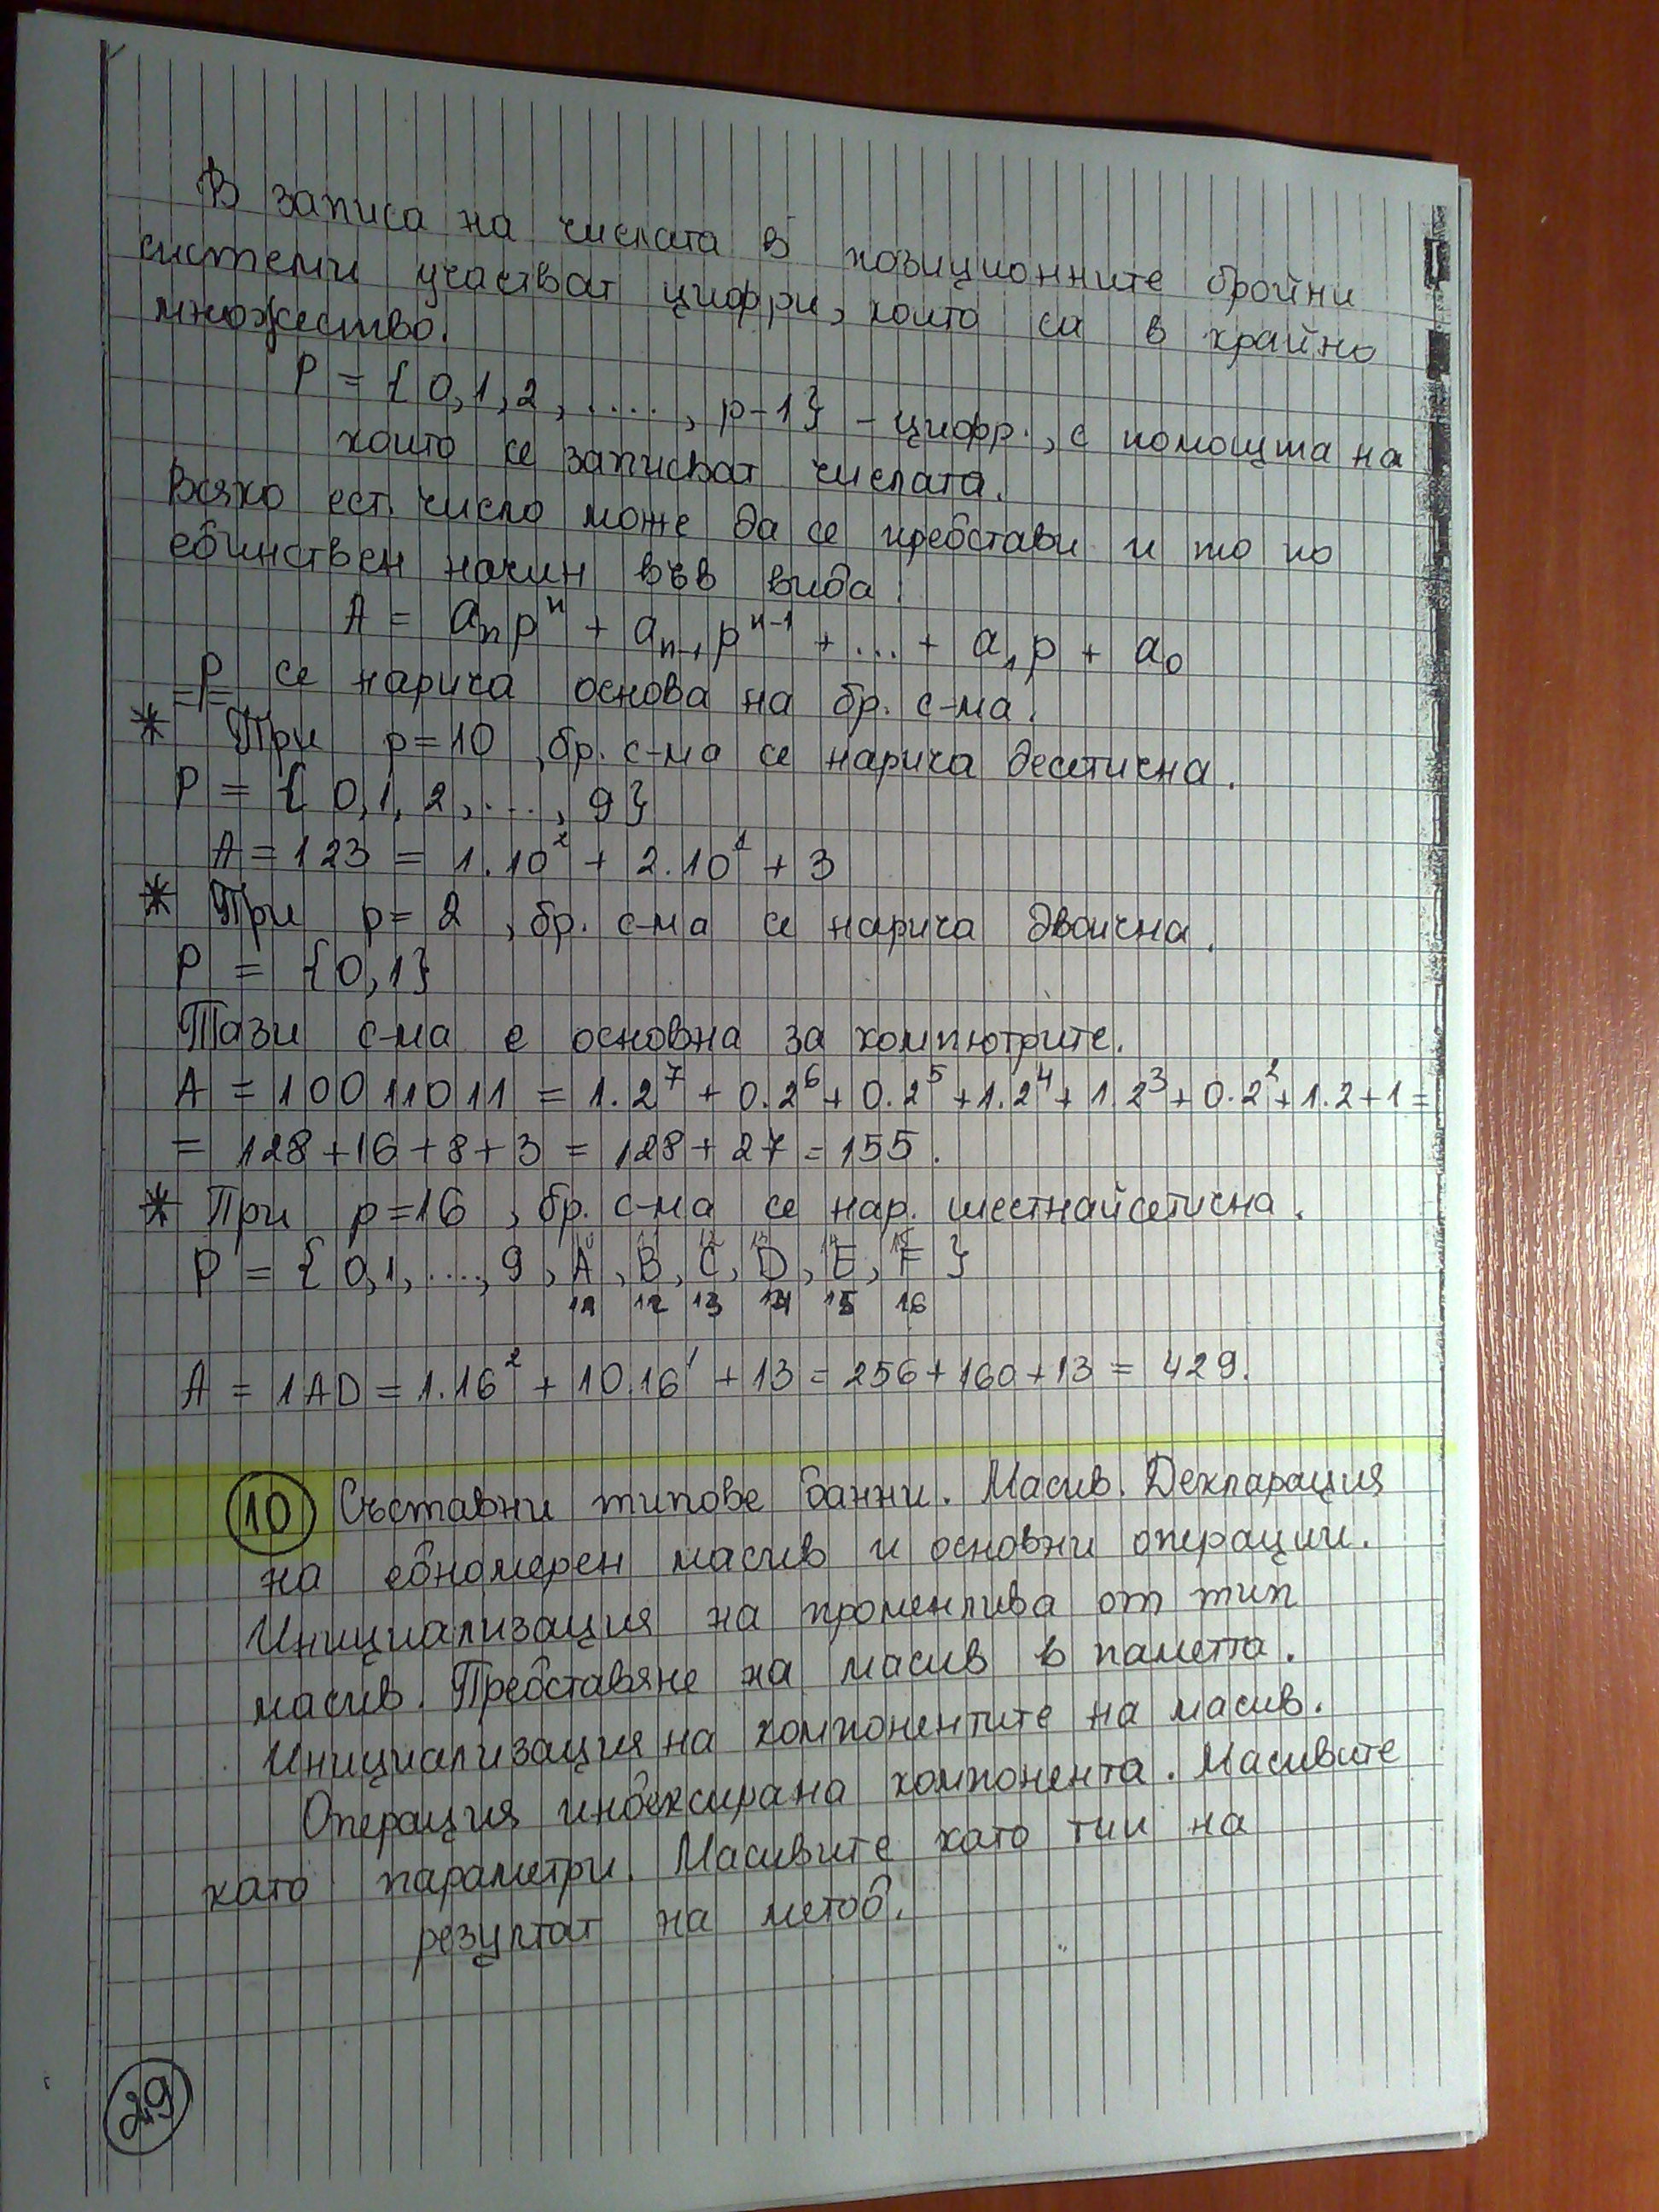 В записа на числата в позиционните бройни
системи участват цифри, които са в крайно
множество.
P = {0,1,2,....,p-1} - цифр., с помощта на
които се записват числата.
Всяко ест. число може да се представи и то по
единствен начин във вида:
A = aₙpⁿ + aₙ₋₁pⁿ⁻¹ + ... + a₁p + a₀
p се нарича основа на бр. с-ма.
* При p=10, бр. с-ма се нарича десетична.
P = {0,1,2,...,9}
A = 123 = 1.10² + 2.10¹ + 3
* При p=2, бр. с-ма се нарича двоична.
P = {0,1}
Тази с-ма е основна за компютрите.
A = 10011011 = 1.2⁷ + 0.2⁶ + 0.2⁵ + 1.2⁴ + 1.2³ + 0.2² + 1.2 + 1 =
= 128+16+8+3 = 128+27 = 155.
* При p=16, бр. с-ма се нар. шестнайсетична.
10 11 12 13 14 15
P = {0,1,....,9,A,B,C,D,E,F}
11 12 13 14 15 16
A = 1AD = 1.16² + 10.16¹ + 13 = 256+160+13 = 429.
10 Съставни типове данни. Масив. Декларация
на едномерен масив и основни операции.
Инициализация на променлива от тип
масив. Представяне на масив в паметта.
Инициализация на компонентите на масив.
Операция индексирана компонента. Масивите
като параметри. Масивите като тип на
резултат на метод.
29